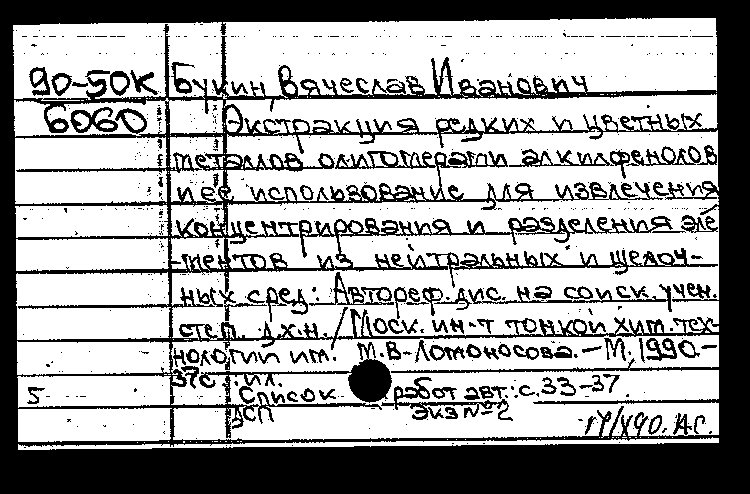 90-50К Букин Вячеслав Иванович
6060 Экстракция редких и цветных
металлов олигомерами алкилфенолов
и ее использование для извлечения
концентрирования и разделения эле
-ментов из нейтральных и щелоч-
ных сред: Автореф. дис. на соиск. учен.
степ. д.х.н. / Моск. ин-т тонкой хим. тех-
нологии им. М.В. Ломоносова. - М, 1990. -
37с.: ил.
5 Список работ авт.: с. 33-37.
ДСП экз № 2
17/X90. А.С.